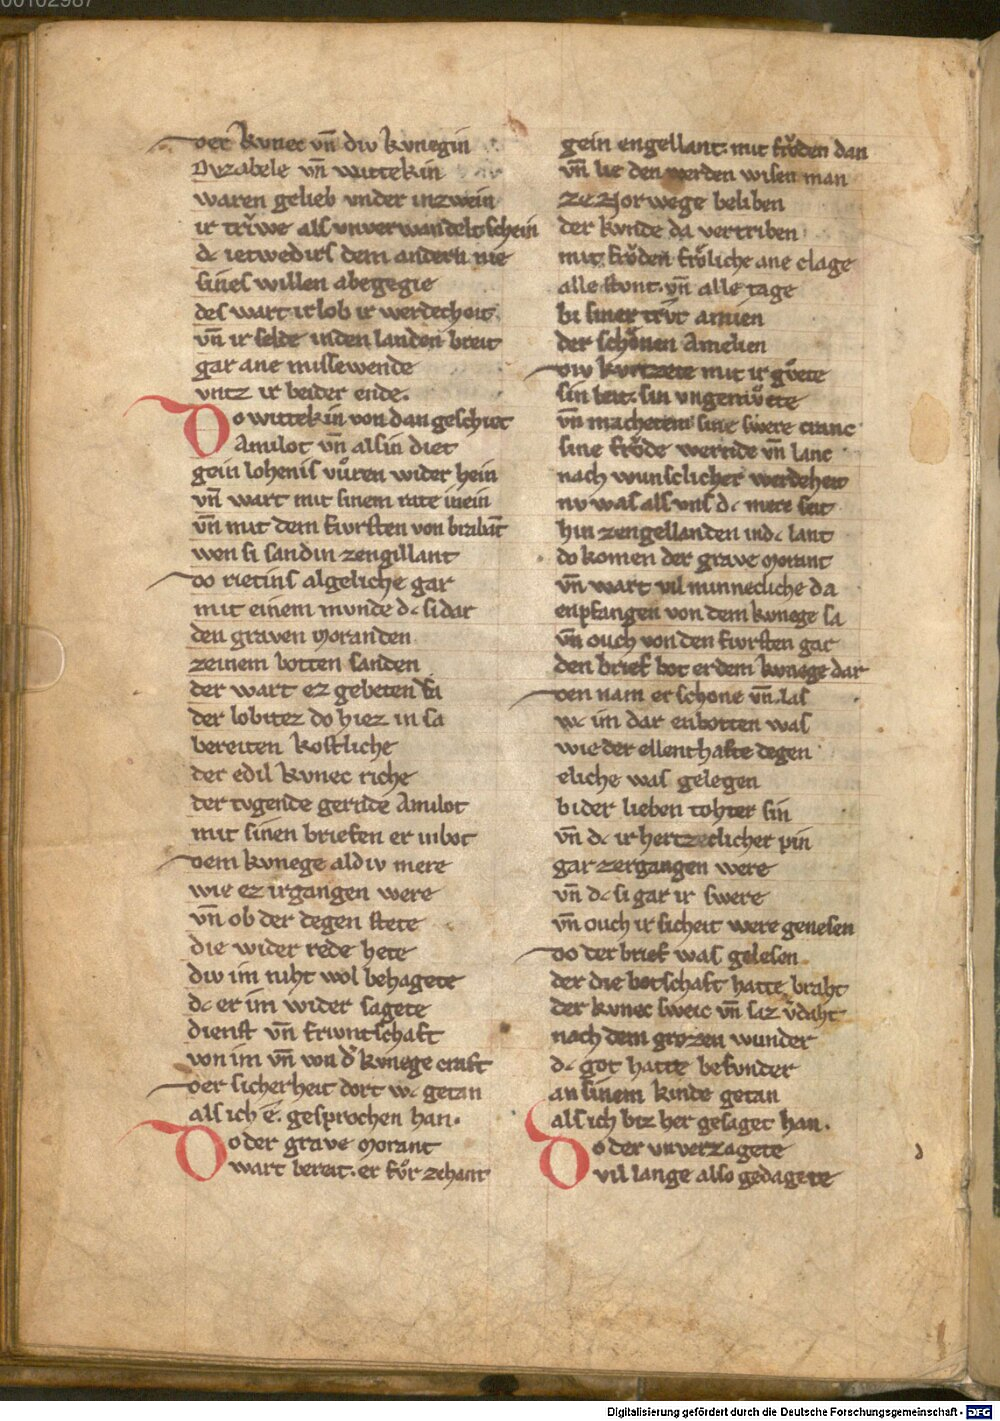 00102987
der kvnec vn̄ div kvnegin
Dyzabele vn̄ wittekin
waren gelieb vnder in zwein
ir trǐwe als unverwandelt schein
dc ietweders dem andern nie
sines willen abegegie
des wart ir lob ir werdecheit
vn̄ ir selde in den landen breit
gar ane missewende
vntz ir beider ende.
Do wittekin von dan geschiet
Amilot vn̄ al sin diet
gein lohenis vůren wider hein
vn̄ wart mit sinem rate inein
vn̄ mit dem fivrsten von brabāt
wen si sandin zengillant
do rietins algeliche gar
mit einem mvnde dc si dar
den graven moranden
zeinem botten sanden
der wart ez gebeten sa
der lobitez do hiez in sa
bereiten kostliche
der edil kvnec riche
der tvgende gernde Amilot
mit sinen briefen er inbot
dem kvnege al div mere
wie ez irgangen were
vn̄ ob der degen stete
die wider rede hete
div im niht wol behagete
dc er im wider sagete
dienst vn̄ frivntschaft
von im vn̄ von d̕ kvnege craft
der sicherheit dort wc getan
als ich e. gesprochen han.
Do der grave morant
wart bereit. er fůr zehant
gein engellant. mit frǒden dan
vn̄ lie den werden wisen man
ze norwege beliben
der kvnde da vertriben
mit frǒden frǒliche ane clage
alle stvnt. vn̄ alle tage
bi siner trvt amien
der schǒnen Amelien
div kvrtzete mit ir gůete
sin leit. sin vngemůete
vn̄ macheten sine swere cranc
sine frǒde wernde vn̄ lanc
nach wunsclicher werdeheit
nv was als vns dc mere seit
hin zengellanden in dc lant
do komen der grave morant
vn̄ wart vil minnecliche da
enpfangen von dem kvnege sa
vn̄ ouch von den fivrsten gar
den brief bot er dem kvnege dar
den nam er schone vn̄ las
wc im dar enbotten was
wie der ellenthafte degen
eliche was gelegen
bi der lieben tohter sin
vn̄ dc ir hertzeclicher pin
gar zergangen were
vn̄ dc si gar ir swere
vn̄ ouch ir sicheit were genesen
do der brief was gelesen
der die botschaft hatte braht
der kvnec sweic vn̄ saz v̄daht
nach dem grozen wunder
dc got hatte besunder
an sinem kinde getan
als ich biz her gesaget han.
Do der unverzagete
vil lange also gedagete
Digitalisierung gefördert durch die Deutsche Forschungsgemeinschaft - DFG